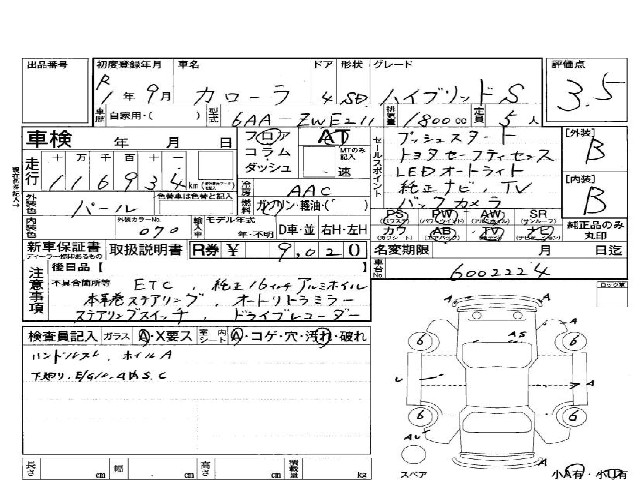 出品番号 初度登録年月 車名 ドア 形状 グレード 評価点
R1年9月 カローラ 4 SD ハイブリッドS 3.5
車歴 自家用・( ) 型式 6AA-ZWE211 排気量 1800cc 定員 5人
車検 年 月 日 フロア コラム・ダッシュ AT MTのみ記入 速
走行 十 万 千 百 十 一
116934km
冷房 AAC
外装色 パール 色替車は色替と記入 燃料 ガソリン・軽油・( )
内装色 外装カラーNo. 070 輸入車 モデル年式 年・不明 D車・並 右H・左H
セールスポイント プッシュスタート
トヨタセーフティセンス
LEDオートライト
純正ナビ、TV
バックカメラ
[外装] B
[内装] B
PS PW AW SR
カワ AB TV ナビ
純正品のみ丸印
新車保証書 取扱説明書 R券 ¥ 9,020 名変期限 月 日迄
車台No. 6002224
注意事項 後日品[ ]
不具合箇所等 ETC、純正16インチアルミホイル
本革巻ステアリング、オートリトラミラー
ステアリングスイッチ、ドライブレコーダー
検査員記入 ガラス A・X要ス 室内シート A・コゲ・穴・汚れ・破れ
ハンドルスレ、ホイルA
下廻り・E/G
A
A S
6 6
U A
6 6
A
スペア
A
長さ cm 幅 cm 高さ cm 積載量 kg
小A有・小U有